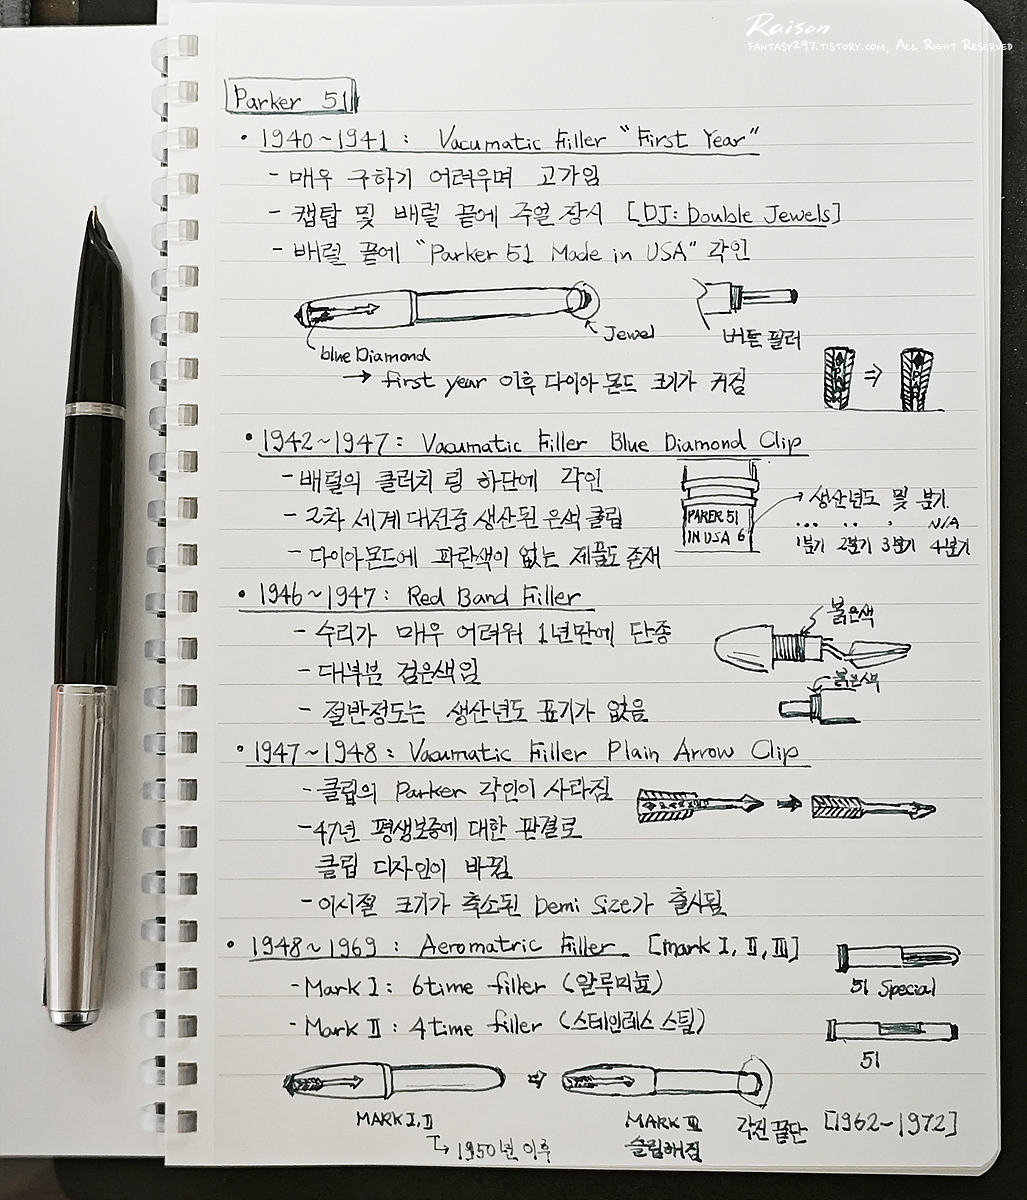 Raison
FANTASY297.TISTORY.COM, ALL RIGHT RESERVED
Parker 51
• 1940~1941 : Vacumatic Filler "First Year"
- 매우 구하기 어려우며 고가임
- 캡탑 및 배럴 끝에 주얼 장식 [DJ: Double Jewels]
- 배럴 끝에 "Parker 51 Made in USA" 각인
Jewel
버튼 필러
blue Diamond
→ first year 이후 다이아몬드 크기가 커짐
• 1942~1947 : Vacumatic Filler Blue Diamond Clip
- 배럴의 클러치 링 하단에 각인
- 2차 세계대전중 생산된 은색 클립
- 다이아몬드에 파란색이 없는 제품도 존재
PARKER 51
IN USA 6
→ 생산년도 및 분기
... .. . N/A
1분기 2분기 3분기 4분기
• 1946~1947 : Red Band Filler
- 수리가 매우 어려워 1년만에 단종
- 대부분 검은색임
- 절반정도는 생산년도 표기가 없음
붉은색
붉은색
• 1947~1948 : Vacumatic Filler Plain Arrow Clip
- 클립의 Parker 각인이 사라짐
- 47년 평생보증에 대한 판결로
클립 디자인이 바뀜
- 이시절 크기가 축소된 Demi Size가 출시됨
• 1948~1969 : Aeromatric Filler [mark I, II, III]
- Mark I : 6time filler (알루미늄)
- Mark II : 4time filler (스테인레스 스틸)
51 Special
51
MARK I, II
↳ 1950년 이후
MARK III
슬림해짐
각진 끝단
[1962~1972]